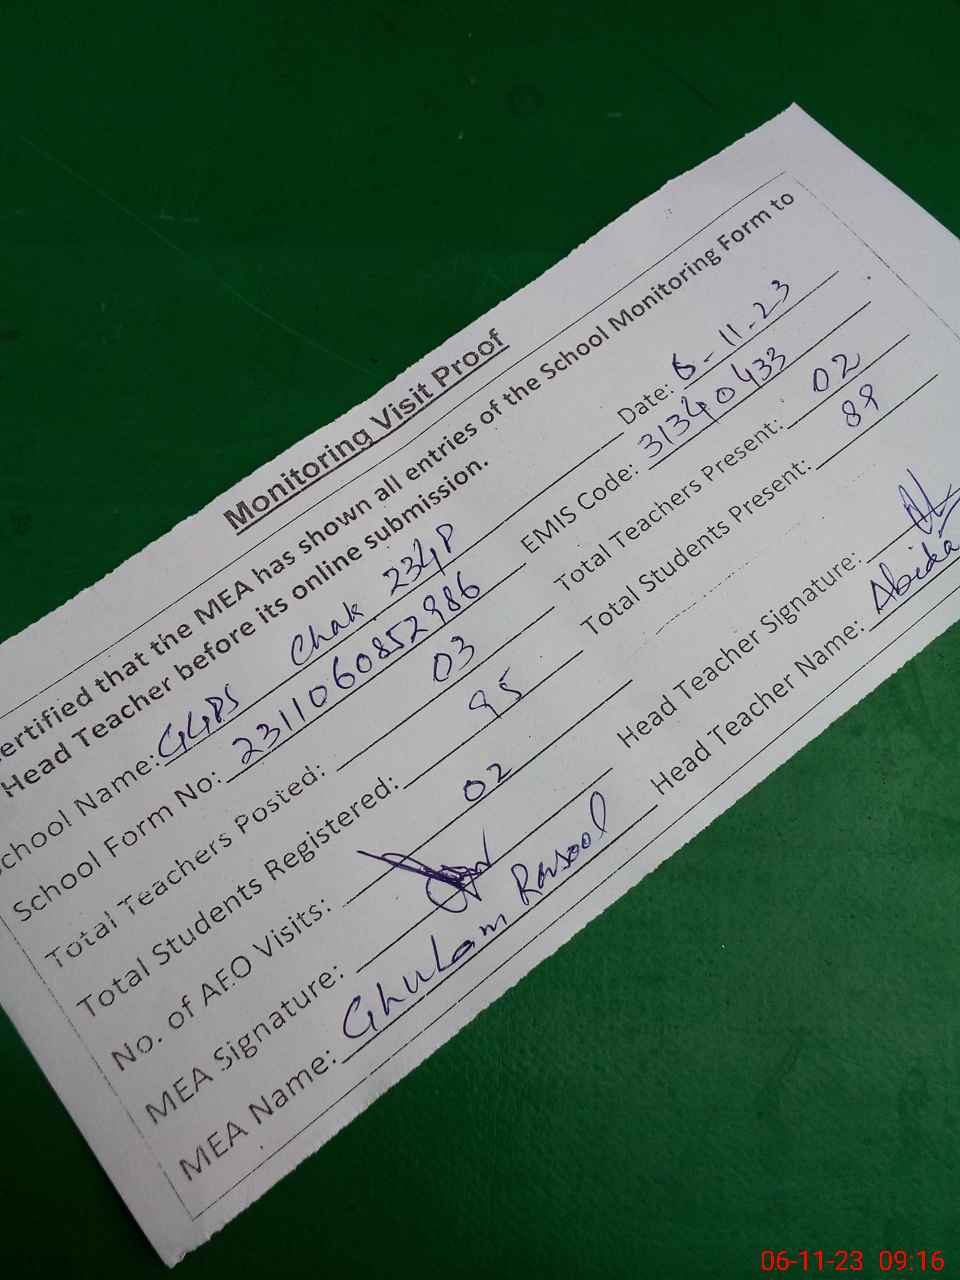 Monitoring Visit Proof
ertified that the MEA has shown all entries of the School Monitoring Form to
Head Teacher before its online submission.
chool Name: GGPS Chak 234P Date: 6-11-23
School Form No: 2311060852986 EMIS Code: 31340433
Total Teachers Posted: 03 Total Teachers Present: 02
Total Students Registered: 95 Total Students Present: 89
No. of AEO Visits: 02
MEA Signature: Head Teacher Signature:
MEA Name: Ghulam Rasool Head Teacher Name: Abida
06-11-23 09:16